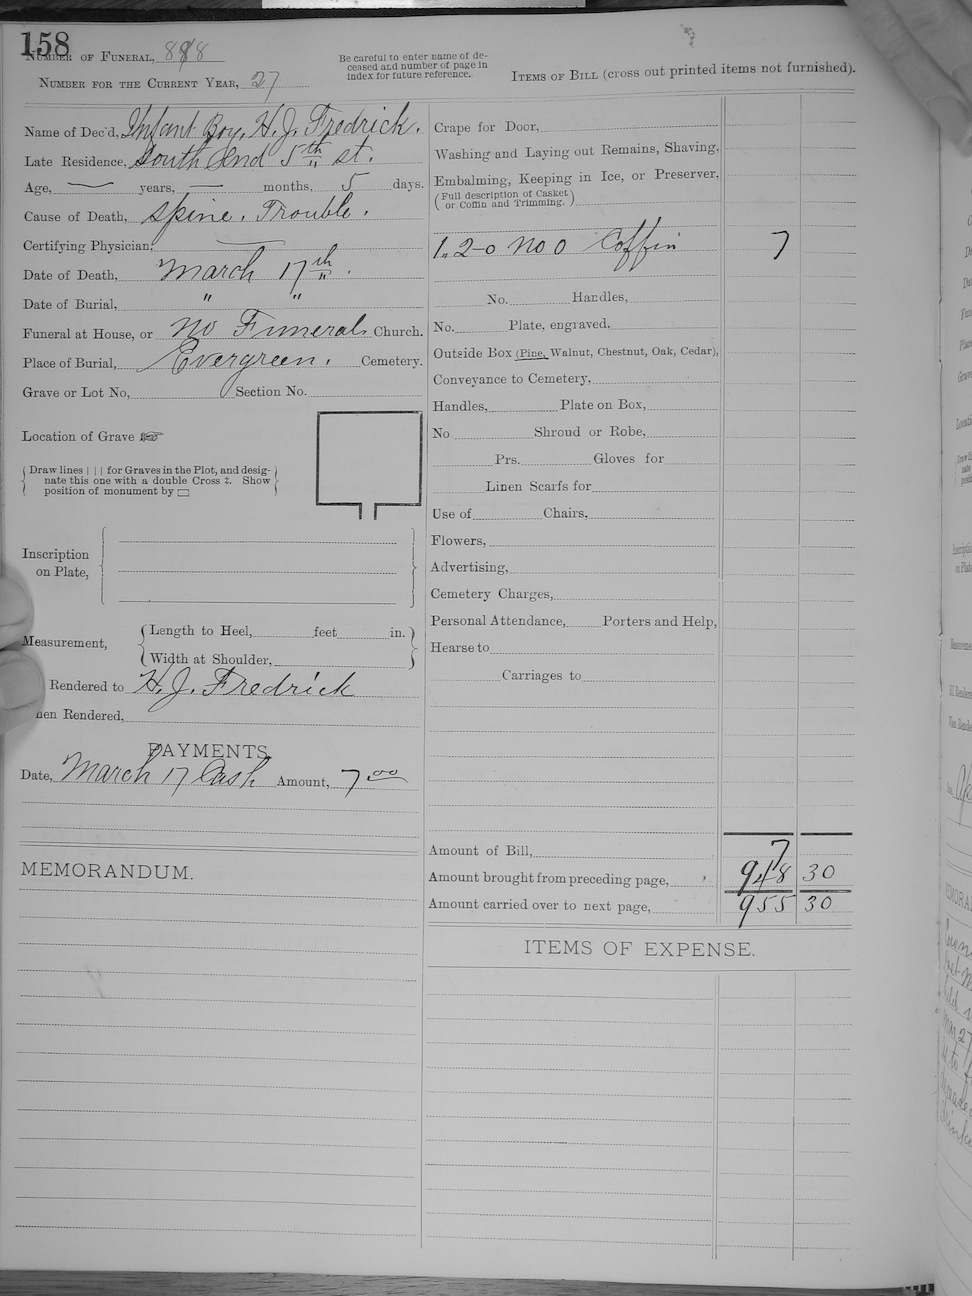 158
Number of Funeral, 888
Number for the Current Year, 27
Be careful to enter name of de-
ceased and number of page in
index for future reference.
Items of Bill (cross out printed items not furnished).
Name of Dec'd, Infant Boy, H. J. Fredrick.
Late Residence, South End 5th st.
Age, — years, — months, 5 days.
Cause of Death, Spine. Trouble.
Certifying Physician, —
Date of Death, March 17th.
Date of Burial, " "
Funeral at House, or No Funeral. Church.
Place of Burial, Evergreen. Cemetery.
Grave or Lot No, Section No.
Location of Grave ☞
Draw lines | | | for Graves in the Plot, and desig-
nate this one with a double Cross ‡. Show
position of monument by ▭
Inscription
on Plate,
Measurement,
Length to Heel, feet in.
Width at Shoulder,
Rendered to H. J. Fredrick
hen Rendered,
PAYMENTS
Date, March 17 Cash Amount, 7 00
MEMORANDUM.
Crape for Door,
Washing and Laying out Remains, Shaving,
Embalming, Keeping in Ice, or Preserver,
(Full description of Casket
or Coffin and Trimming.)
1. 2-0 No 0 Coffin 7
No. Handles,
No. Plate, engraved,
Outside Box (Pine, Walnut, Chestnut, Oak, Cedar),
Conveyance to Cemetery,
Handles, Plate on Box,
No Shroud or Robe,
Prs. Gloves for
Linen Scarfs for
Use of Chairs,
Flowers,
Advertising,
Cemetery Charges,
Personal Attendance, Porters and Help,
Hearse to
Carriages to
Amount of Bill, 7
Amount brought from preceding page, 948 30
Amount carried over to next page, 955 30
ITEMS OF EXPENSE.